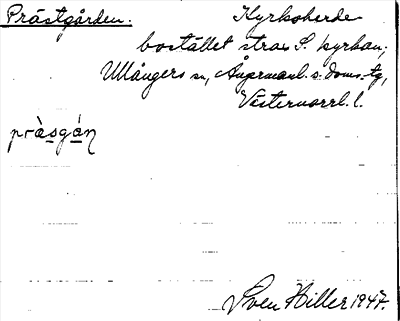 Prästgården. Kyrkoherde
bostället strax S. kyrkan,
Ullångers sn, Ångermanl. s. doms. tg,
Västernorrl. l.
pràsgán
Sven Hiller 1947.